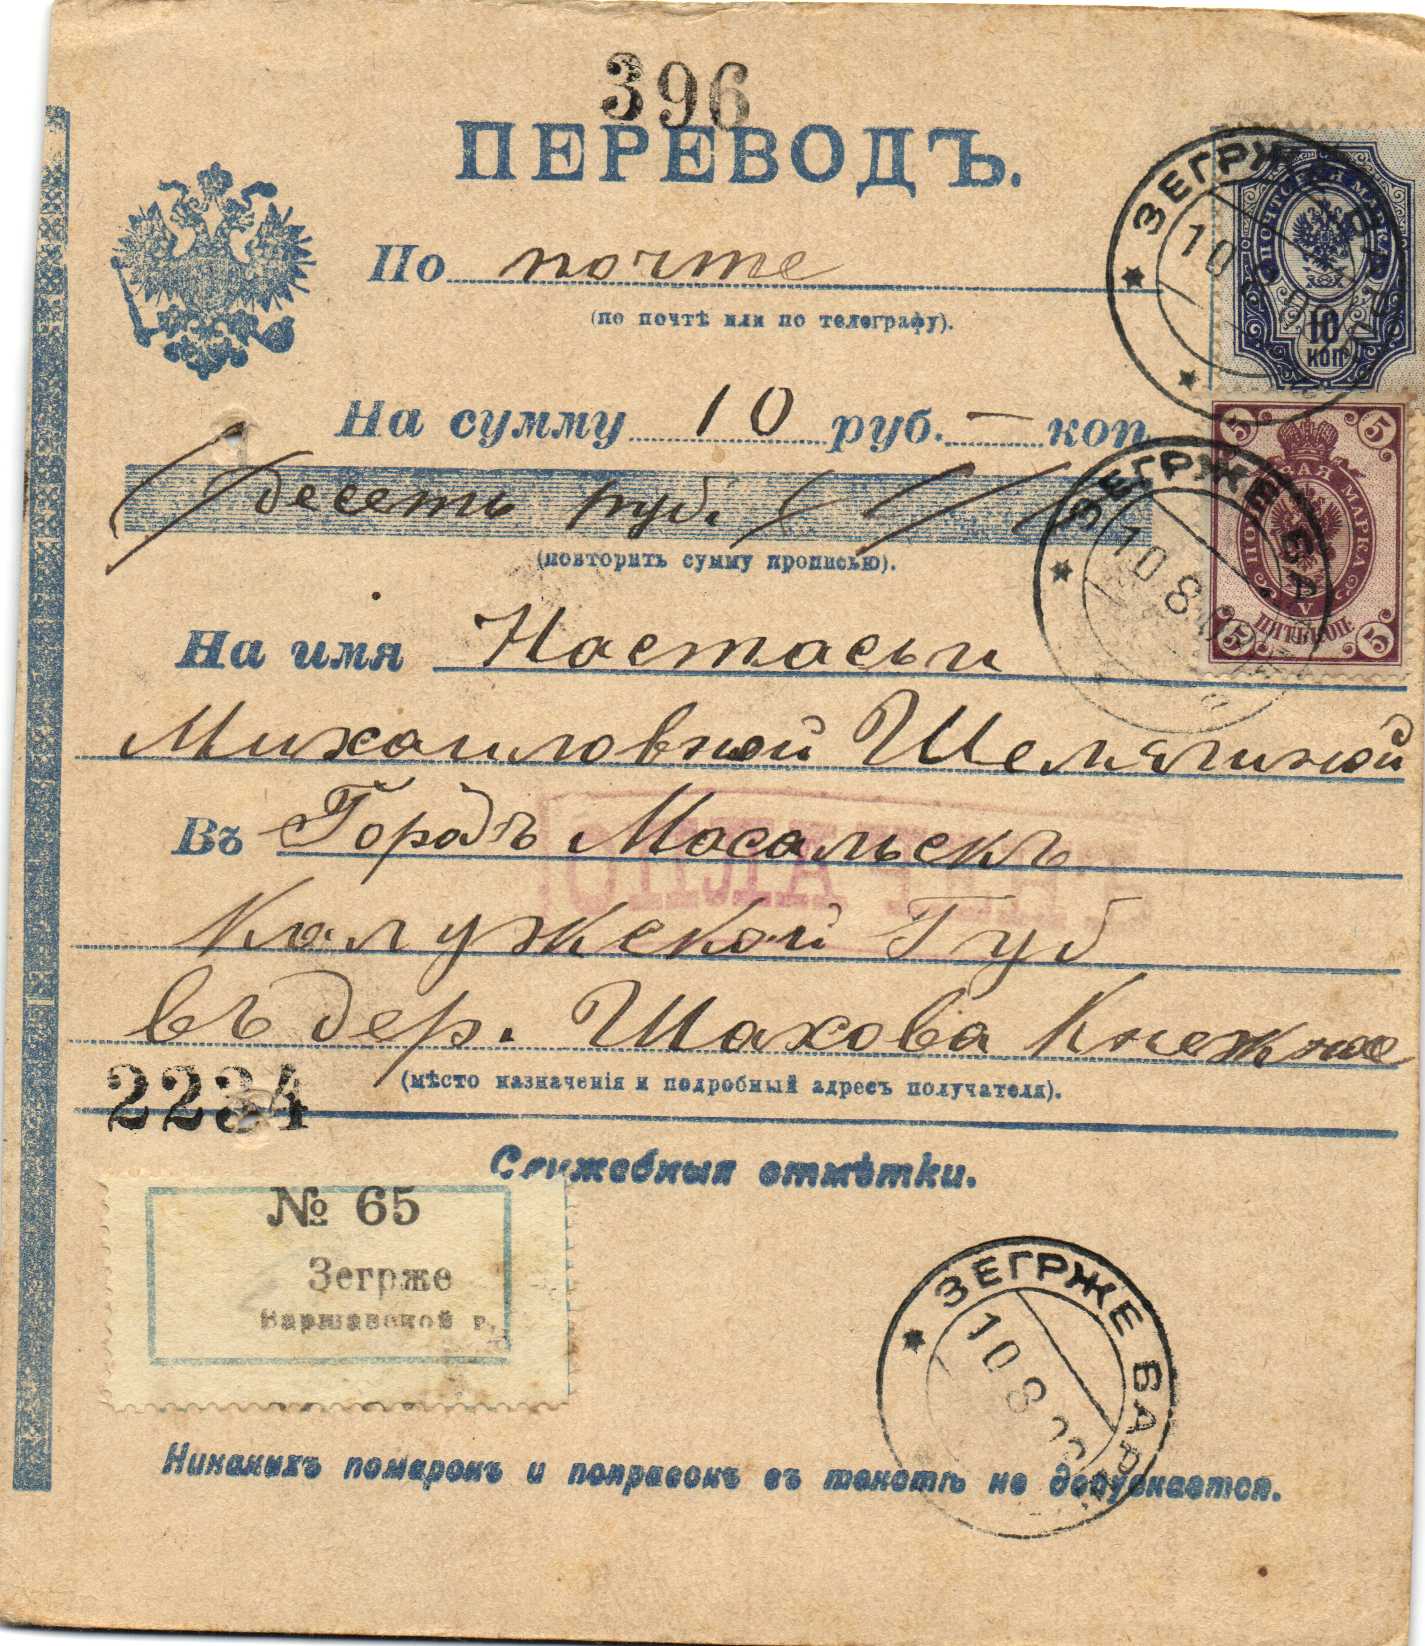 396
ПЕРЕВОДЪ.
По почте
(по почтѣ или по телеграфу).
На сумму 10 руб. — коп
десеть руб.
(повторить сумму прописью).
На имя Настасьи
Михаиловной Шемягиной
Въ Городъ Мосальскъ
Калужской Губ
въ дер. Шахова
(мѣсто назначенія и подробный адресъ получателя).
2234
Служебныя отмѣтки.
№ 65
Зегрже
Варшавской г.
Никакихъ помарокъ и поправокъ въ текстѣ не допускается.
ПОЧТОВАЯ МАРКА
10
КОП
5 5
МАРКА
V
ПЯТЬ КОП.
5 5
ЗЕГРЖЕ ВАР
10 8
ЗЕГРЖЕ ВАР
10 8
ЗЕГРЖЕ ВАР
10 8